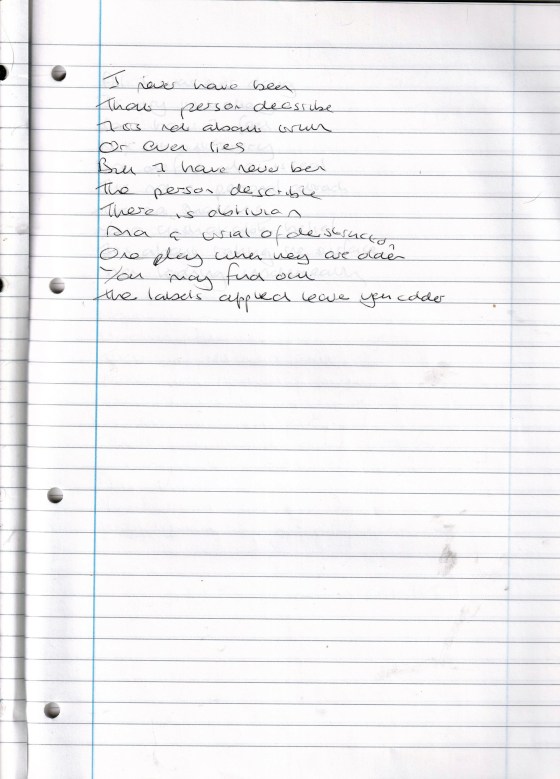 I never have been
That person describe
It is not about truth
Or even lies
But I have never been
The person describle
There is oblivian
And a trial of destruction
One play when they are older
You may find out
The labels applied leave you colder